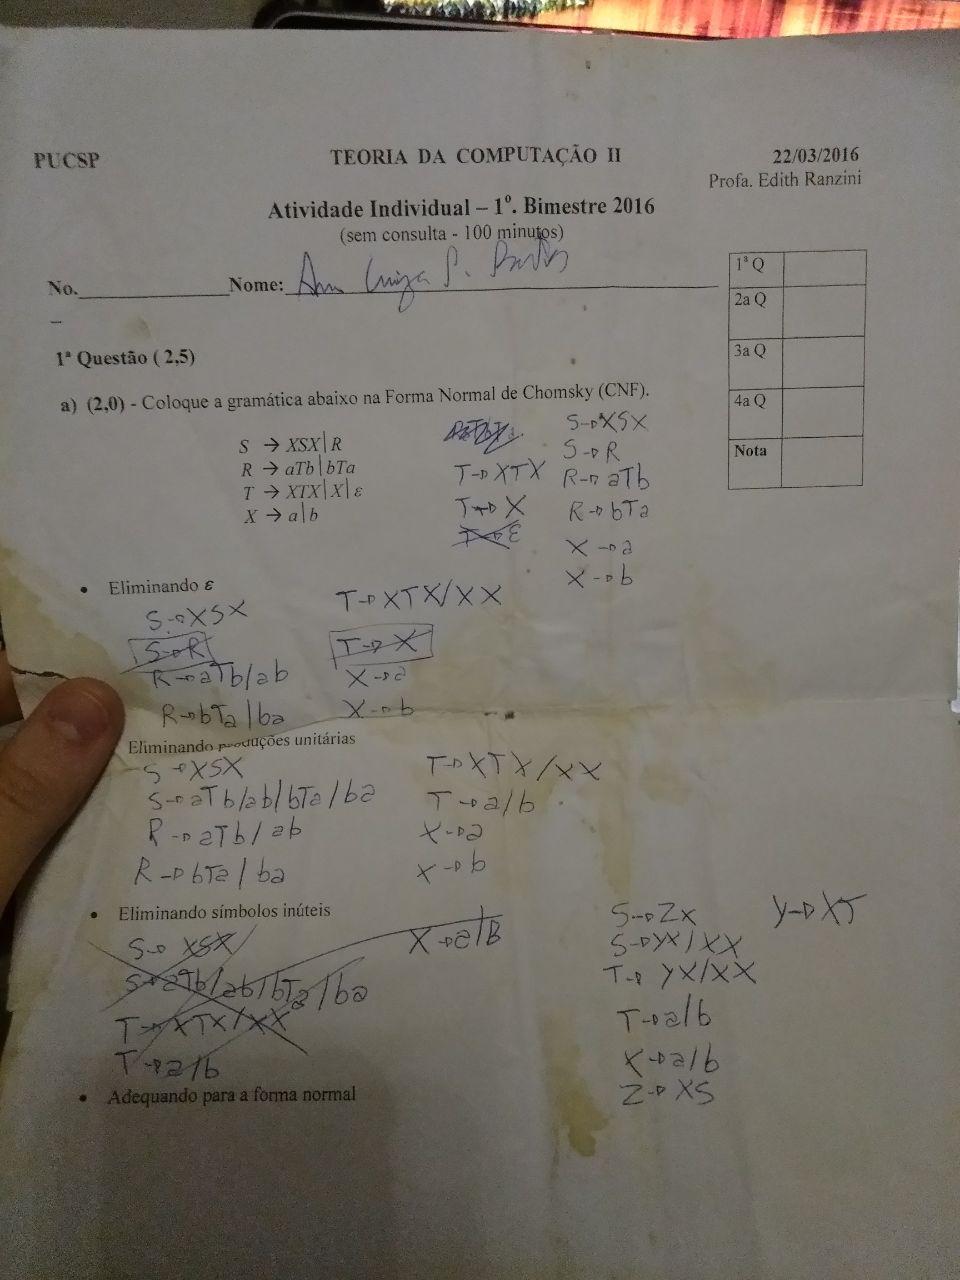 PUCSP TEORIA DA COMPUTAÇÃO II 22/03/2016
Profa. Edith Ranzini
Atividade Individual – 1º. Bimestre 2016
(sem consulta - 100 minutos)
No. Nome: Luiza
1ª Q
2a Q
3a Q
4a Q
Nota
1ª Questão ( 2,5)
a) (2,0) - Coloque a gramática abaixo na Forma Normal de Chomsky (CNF).
S → XSX | R
R → aTb | bTa
T → XTX | X | ε
X → a | b
T → XTX
T → X
T → ε
S → XSX
S → R
R → aTb
R → bTa
X → a
X → b
• Eliminando ε
S → XSX
S → R
R → aTb/ab
R → bTa | ba
T → XTX/XX
T → X
X → a
X → b
Eliminando produções unitárias
S → XSX
S → aTb/ab/bTa/ba
R → aTb/ab
R → bTa | ba
T → XTX/XX
T → a/b
X → a
X → b
• Eliminando símbolos inúteis
S → XSX
S → aTb/ab/bTa/ba
T → XTX/XX
T → a/b
X → a/B
S → ZX
S → YX/XX
T → YX/XX
T → a/b
X → a/b
Z → XS
Y → XT
• Adequando para a forma normal